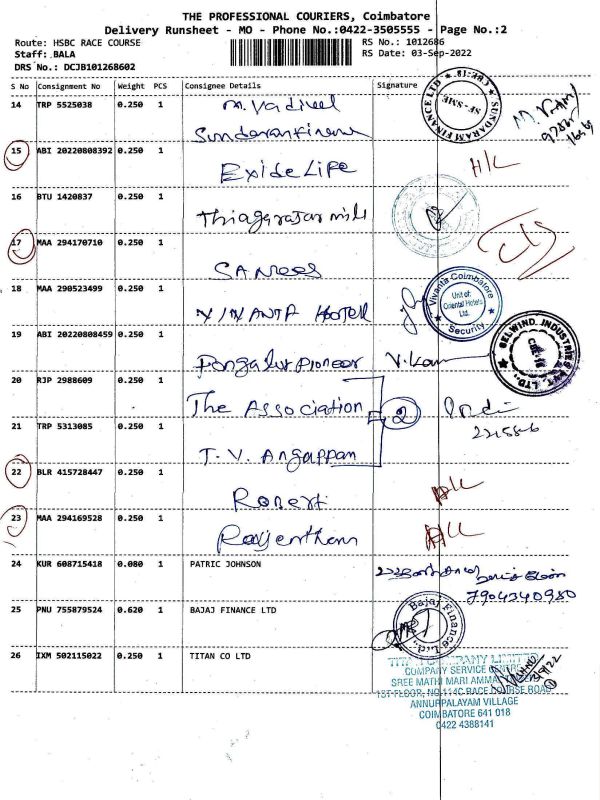 THE PROFESSIONAL COURIERS, Coimbatore
Delivery Runsheet - MO - Phone No.:0422-3505555 - Page No.:2
Route: HSBC RACE COURSE RS No.: 1012686
Staff: BALA RS Date: 03-Sep-2022
DRS No.: DCJB101268602
S No Consignment No Weight PCS Consignee Details Signature
14 TRP 5525038 0.250 1 M. Vadivel
Sundaram Finance
SUNDARAM FINANCE LTD
SF - SME
15 ABI 20220808392 0.250 1 Exide Life
16 BTU 1420837 0.250 1 Thiagarajar mill
17 MAA 294170710 0.250 1
18 MAA 290523499 0.250 1 VIVANTA HOTEL
Vivanta Coimbatore
Unit of:
Oriental Hotels
Ltd.
Security
19 ABI 20220808459 0.250 1 Pongalur Pioneer
SELWIND. INDUSTRIES PVT. LTD.
20 RJP 2988609 0.250 1 The Association 2
21 TRP 5313085 0.250 1 T. V. Angappan
22 BLR 415728447 0.250 1 Robert
23 MAA 294169528 0.250 1 Rajenthran
24 KUR 608715418 0.080 1 PATRIC JOHNSON
7904340980
25 PNU 755879524 0.620 1 BAJAJ FINANCE LTD
Bajaj Finance Ltd.
26 IXM 502115022 0.250 1 TITAN CO LTD
TITAN COMPANY LIMITED
COMPANY SERVICE CENTRE
SREE MATHI MARI AMMA
1ST FLOOR, NO.114C RACE COURSE ROAD
ANNUPPALAYAM VILLAGE
COIMBATORE 641 018
0422 4388141